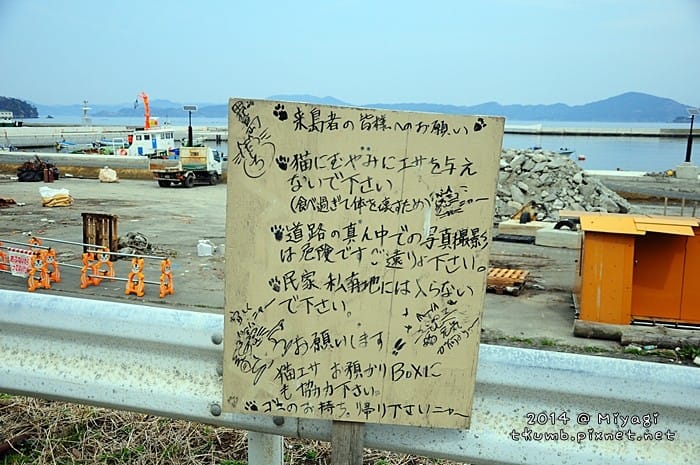 来島者の皆様へのお願い
猫にむやみにエサを与え
ないで下さい
(食べ過ぎて体を壊すため)
道路の真ん中での写真撮影
は危険ですご遠りょ下さい。
民家、私有地には入らない
で下さい。
お願いします
猫エサ お預かりBOXに
も協力下さい。
ゴミのお持ち帰り下さいニャー
2014 @ Miyagi
tkumb.pixnet.net